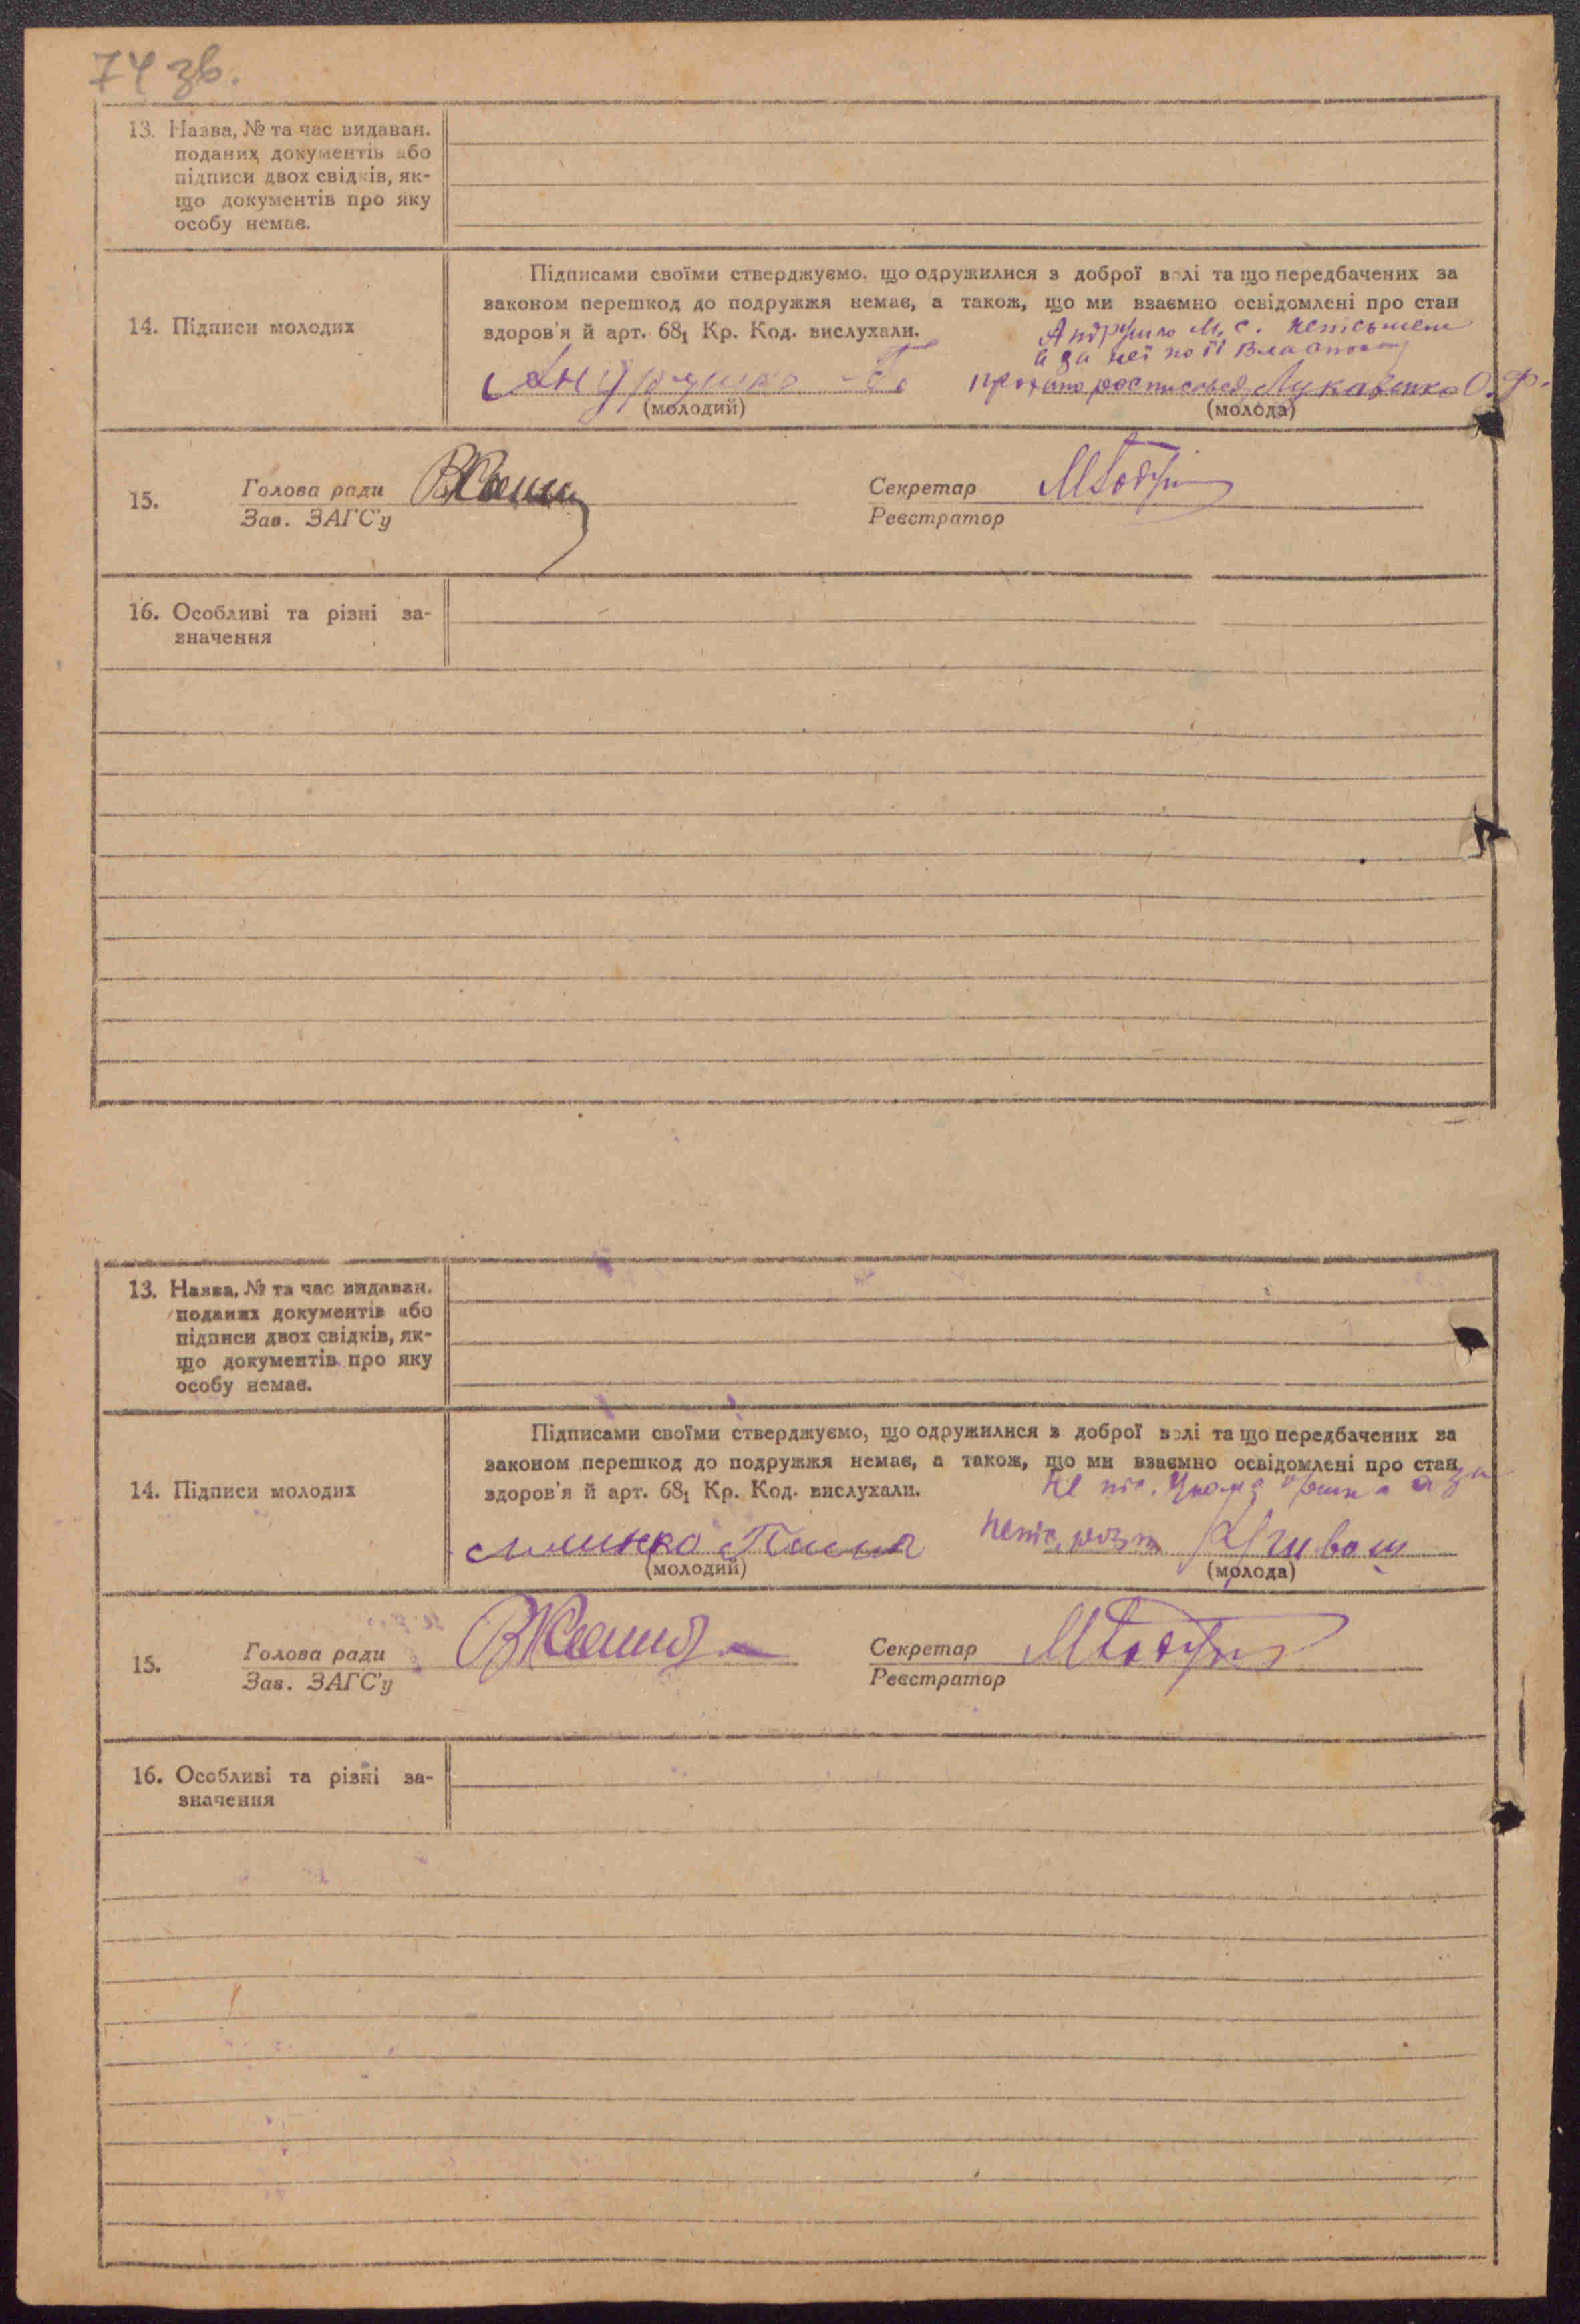 74 зв.
13. Назва, № та час видаван.
поданих документів або
підписи двох свідків, як-
що документів про яку
особу немає.
14. Підписи молодих
Підписами своїми стверджуємо, що одружилися з доброї волі та що передбачених за
законом перешкод до подружжя немає, а також, що ми взаємно освідомлені про стан
здоров'я й арт. 68₁ Кр. Код. вислухали.
М. С.
а за неї по її
Лукавенко О. Ф.
(молодий)
(молода)
15.
Голова ради
Зав. ЗАГС'у
Секретар
Реєстратор
16. Особливі та різні за-
значення
13. Назва, № та час видаван.
поданих документів або
підписи двох свідків, як-
що документів про яку
особу немає.
14. Підписи молодих
Підписами своїми стверджуємо, що одружилися з доброї волі та що передбачених за
законом перешкод до подружжя немає, а також, що ми взаємно освідомлені про стан
здоров'я й арт. 68₁ Кр. Код. вислухали.
(молодий)
(молода)
15.
Голова ради
Зав. ЗАГС'у
Секретар
Реєстратор
16. Особливі та різні за-
значення